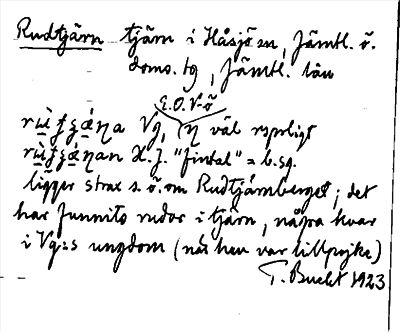 Rudtjärn tjärn i Håsjö sn, Jämtl. ö.
doms. tg, Jämtl. län
E.O. V-ö
Vg, η väl
H.J. "findal" = b.sg.
ligger strax s.ö. om Rudtjärnberget; det
har funnits rudor i tjärn, några kvar
i Vg:s ungdom (när han var lillpojke)
T. Bucht 1923